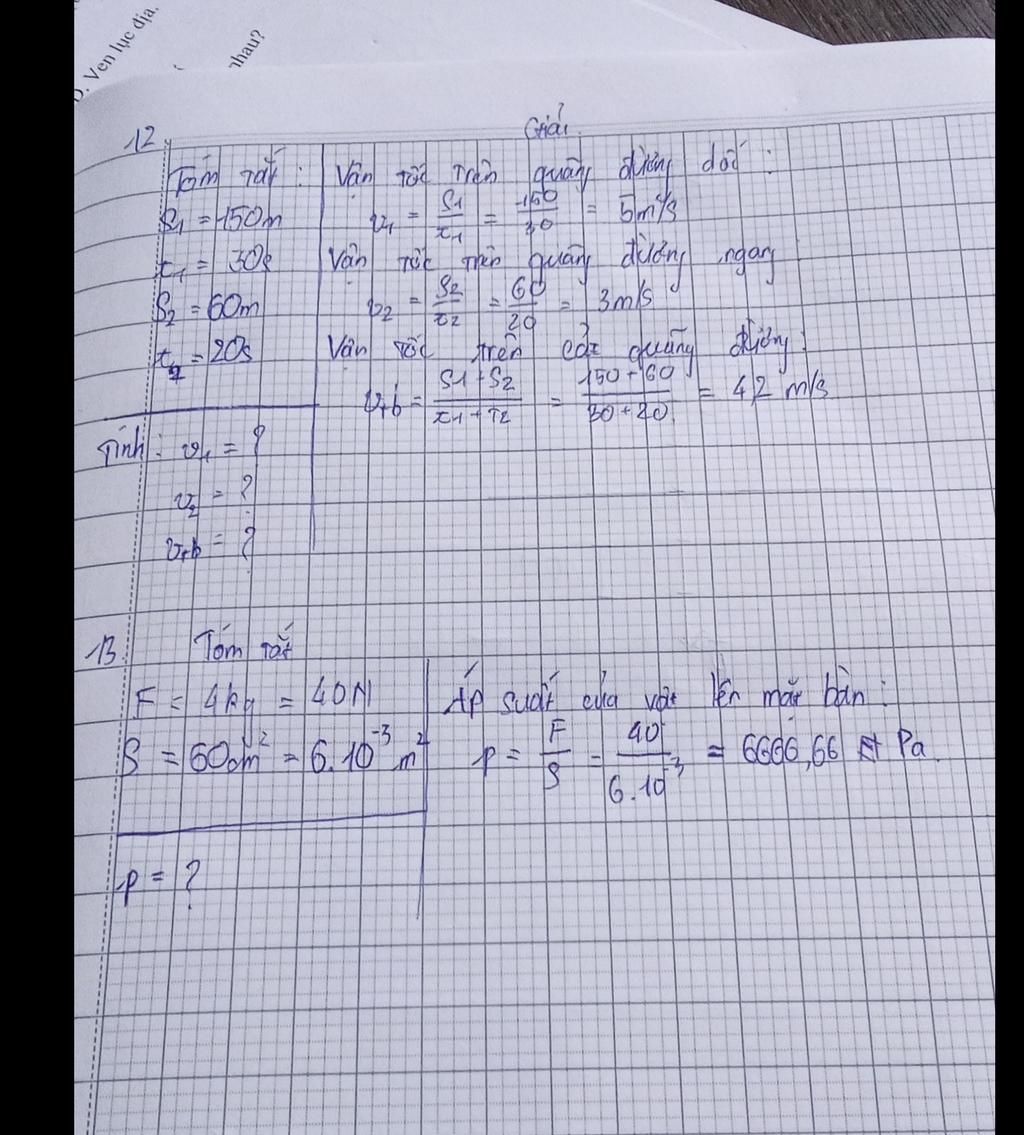 D. Ven lục địa.
nhau?
Giải
12
Tóm tắt :
S1 = 150m
t1 = 30s
S2 = 60m
t2 = 20s
Tính : v1 = ?
v2 = ?
vtb = ?
Vận tốc trên quãng đường dốc :
v1 = S1/t1 = 150/30 = 5m/s
Vận tốc trên quãng đường ngang
v2 = S2/t2 = 60/20 = 3m/s
Vận tốc trên cả quãng đường :
vtb = S1+S2/t1+t2 = 150+60/30+20 = 4,2 m/s
13. Tóm tắt
F = 4kg = 40N
S = 60cm² = 6.10⁻³ m²
p = ?
Áp suất của vật lên mặt bàn :
p = F/S = 40/6.10⁻³ = 6666,66 Pa.